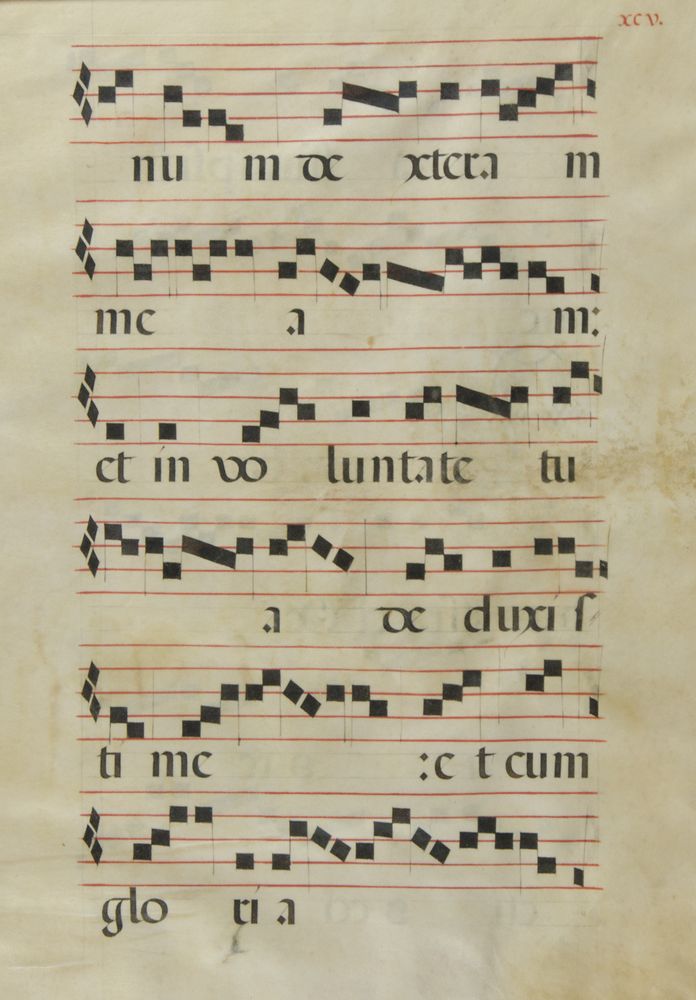 xcv.
nu m de xtera m
me a m:
et in vo luntate tu
a de duxi ſ
ti me :e t cum
glo ri a